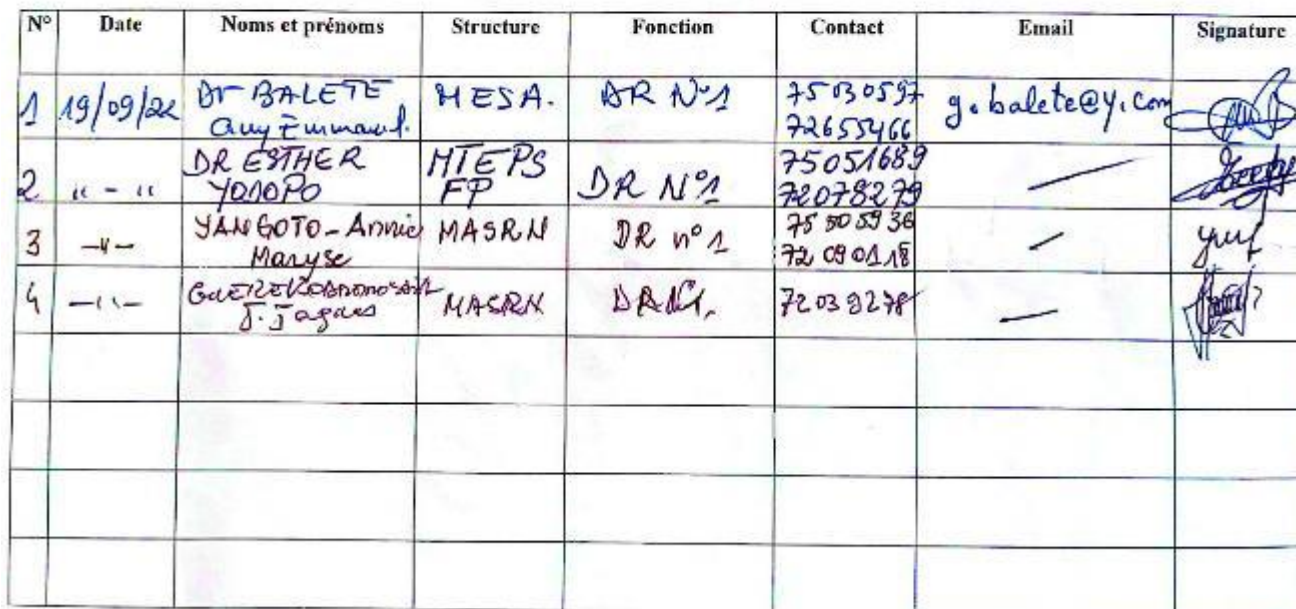 N° Date Noms et prénoms Structure Fonction Contact Email Signature
1 19/09/22 Dr BALETE Guy Emmanuel. MESA. DR N°1 75030597 72655466 g.balete@y.com
2 " - " DR ESTHER YODOPO MTEPS FP DR N°1 75051689 72078279
3 -"- YANGOTO-Annie Maryse MASRN DR n°1 75505936 72090118
4 -"- J. Jaques MASRN DR N°1. 72039278